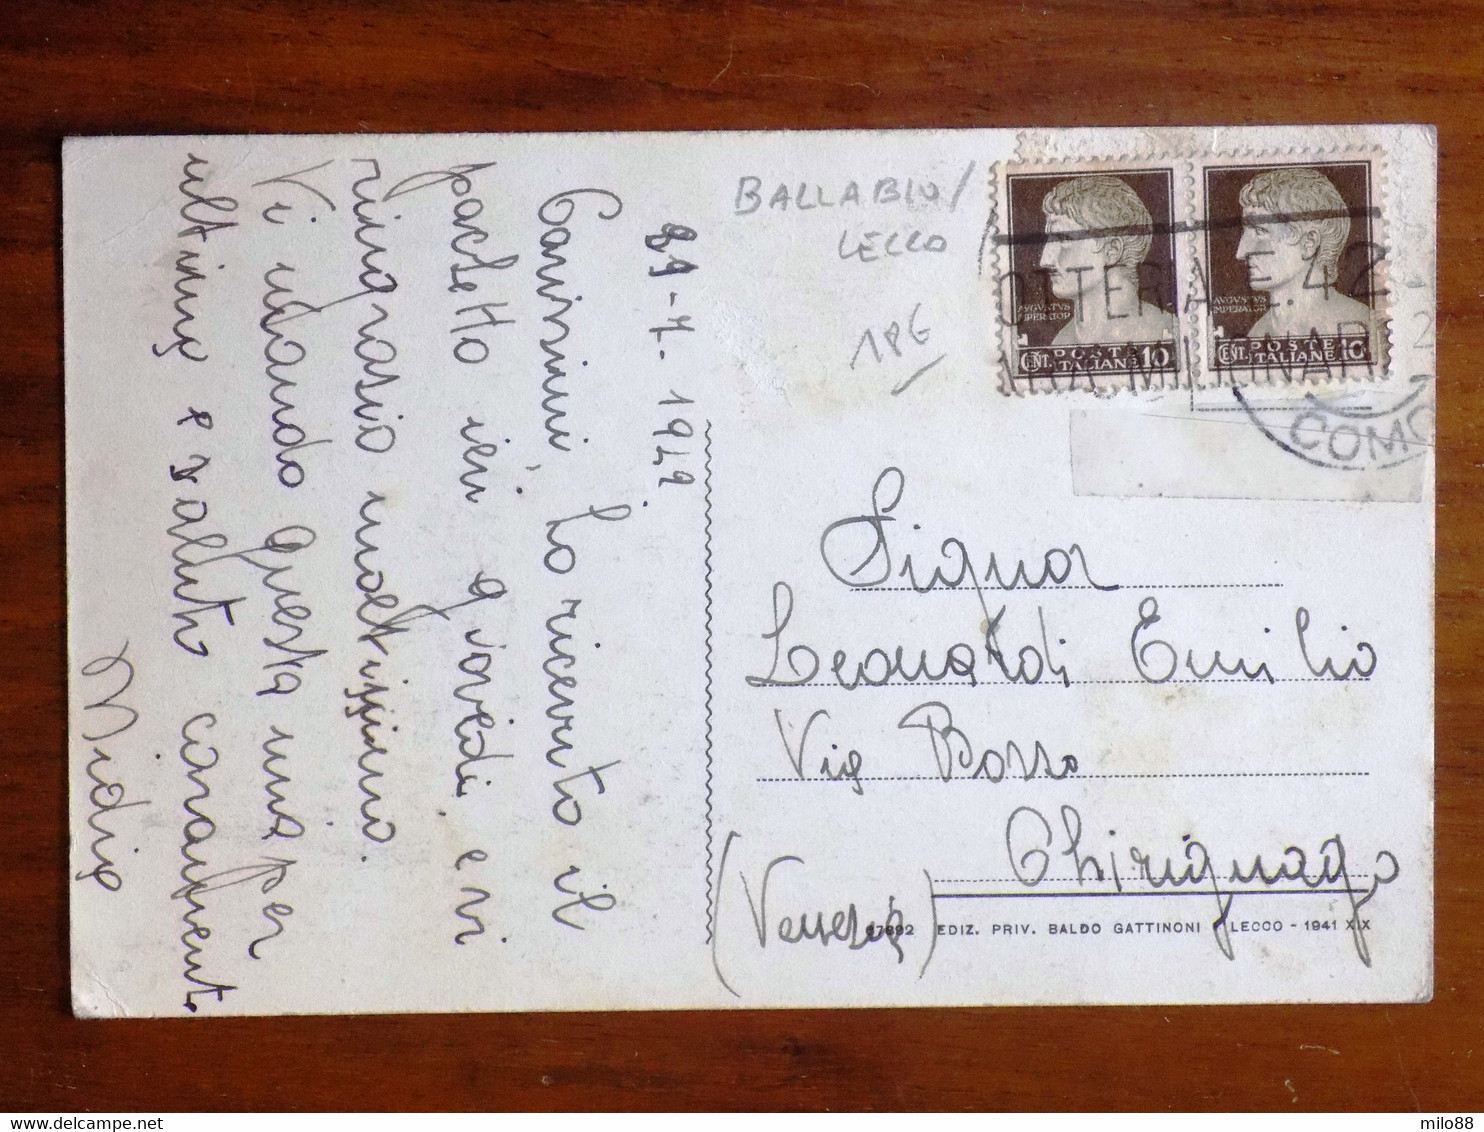 29-4-1942
Carissimi ho ricevuto il
pacchetto ieri giovedì e vi
ringrazio moltissimo.
Vi mando questa mia per
ultimo e saluto
Nidia
BALLABIO/
LECCO
18€
AVGVSTVS
IMPERATOR
CENT. POSTE
ITALIANE 10
AVGVSTVS
IMPERATOR
CENT. POSTE
ITALIANE 10
LOTTERIA E.42
MILIONARI
COMO
Signor
Leonardi Emilio
Via Bosso
Chirignago
(Venezia)
EDIZ. PRIV. BALDO GATTINONI - LECCO - 1941 XIX
milo88